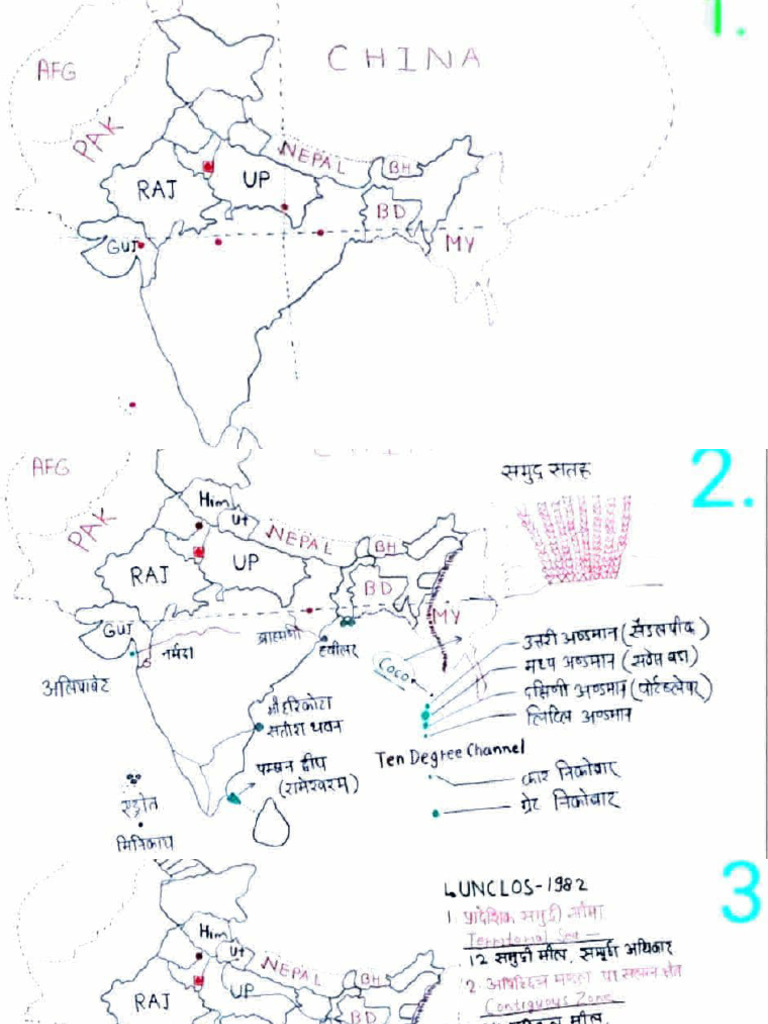 1.
CHINA
AFG
PAK
NEPAL
BH
RAJ
UP
BD
GUJ
MY
2.
समुद्र सतह
AFG
PAK
Him
Ut
NEPAL
BH
RAJ
UP
BD
MY
GUJ
ब्राह्मणी
नर्मदा
हवीलर
Coco
उत्तरी अण्डमान (सैडलपीक)
मध्य अण्डमान
दक्षिणी अण्डमान (पोर्टब्लेयर)
लिटिल अण्डमान
अलियाबेट
श्रीहरिकोटा
सतीश धवन
Ten Degree Channel
पम्बन द्वीप
(रामेश्वरम)
कार निकोबार
ग्रेट निकोबार
मिनिकाय
3
UNCLOS-1982
1. प्रादेशिक समुद्री सीमा
Territorial Sea
12 समुद्री मील, सम्पूर्ण अधिकार
Him
Ut
NEPAL
BH
RAJ
UP
BD
2.
Contiguous Zone